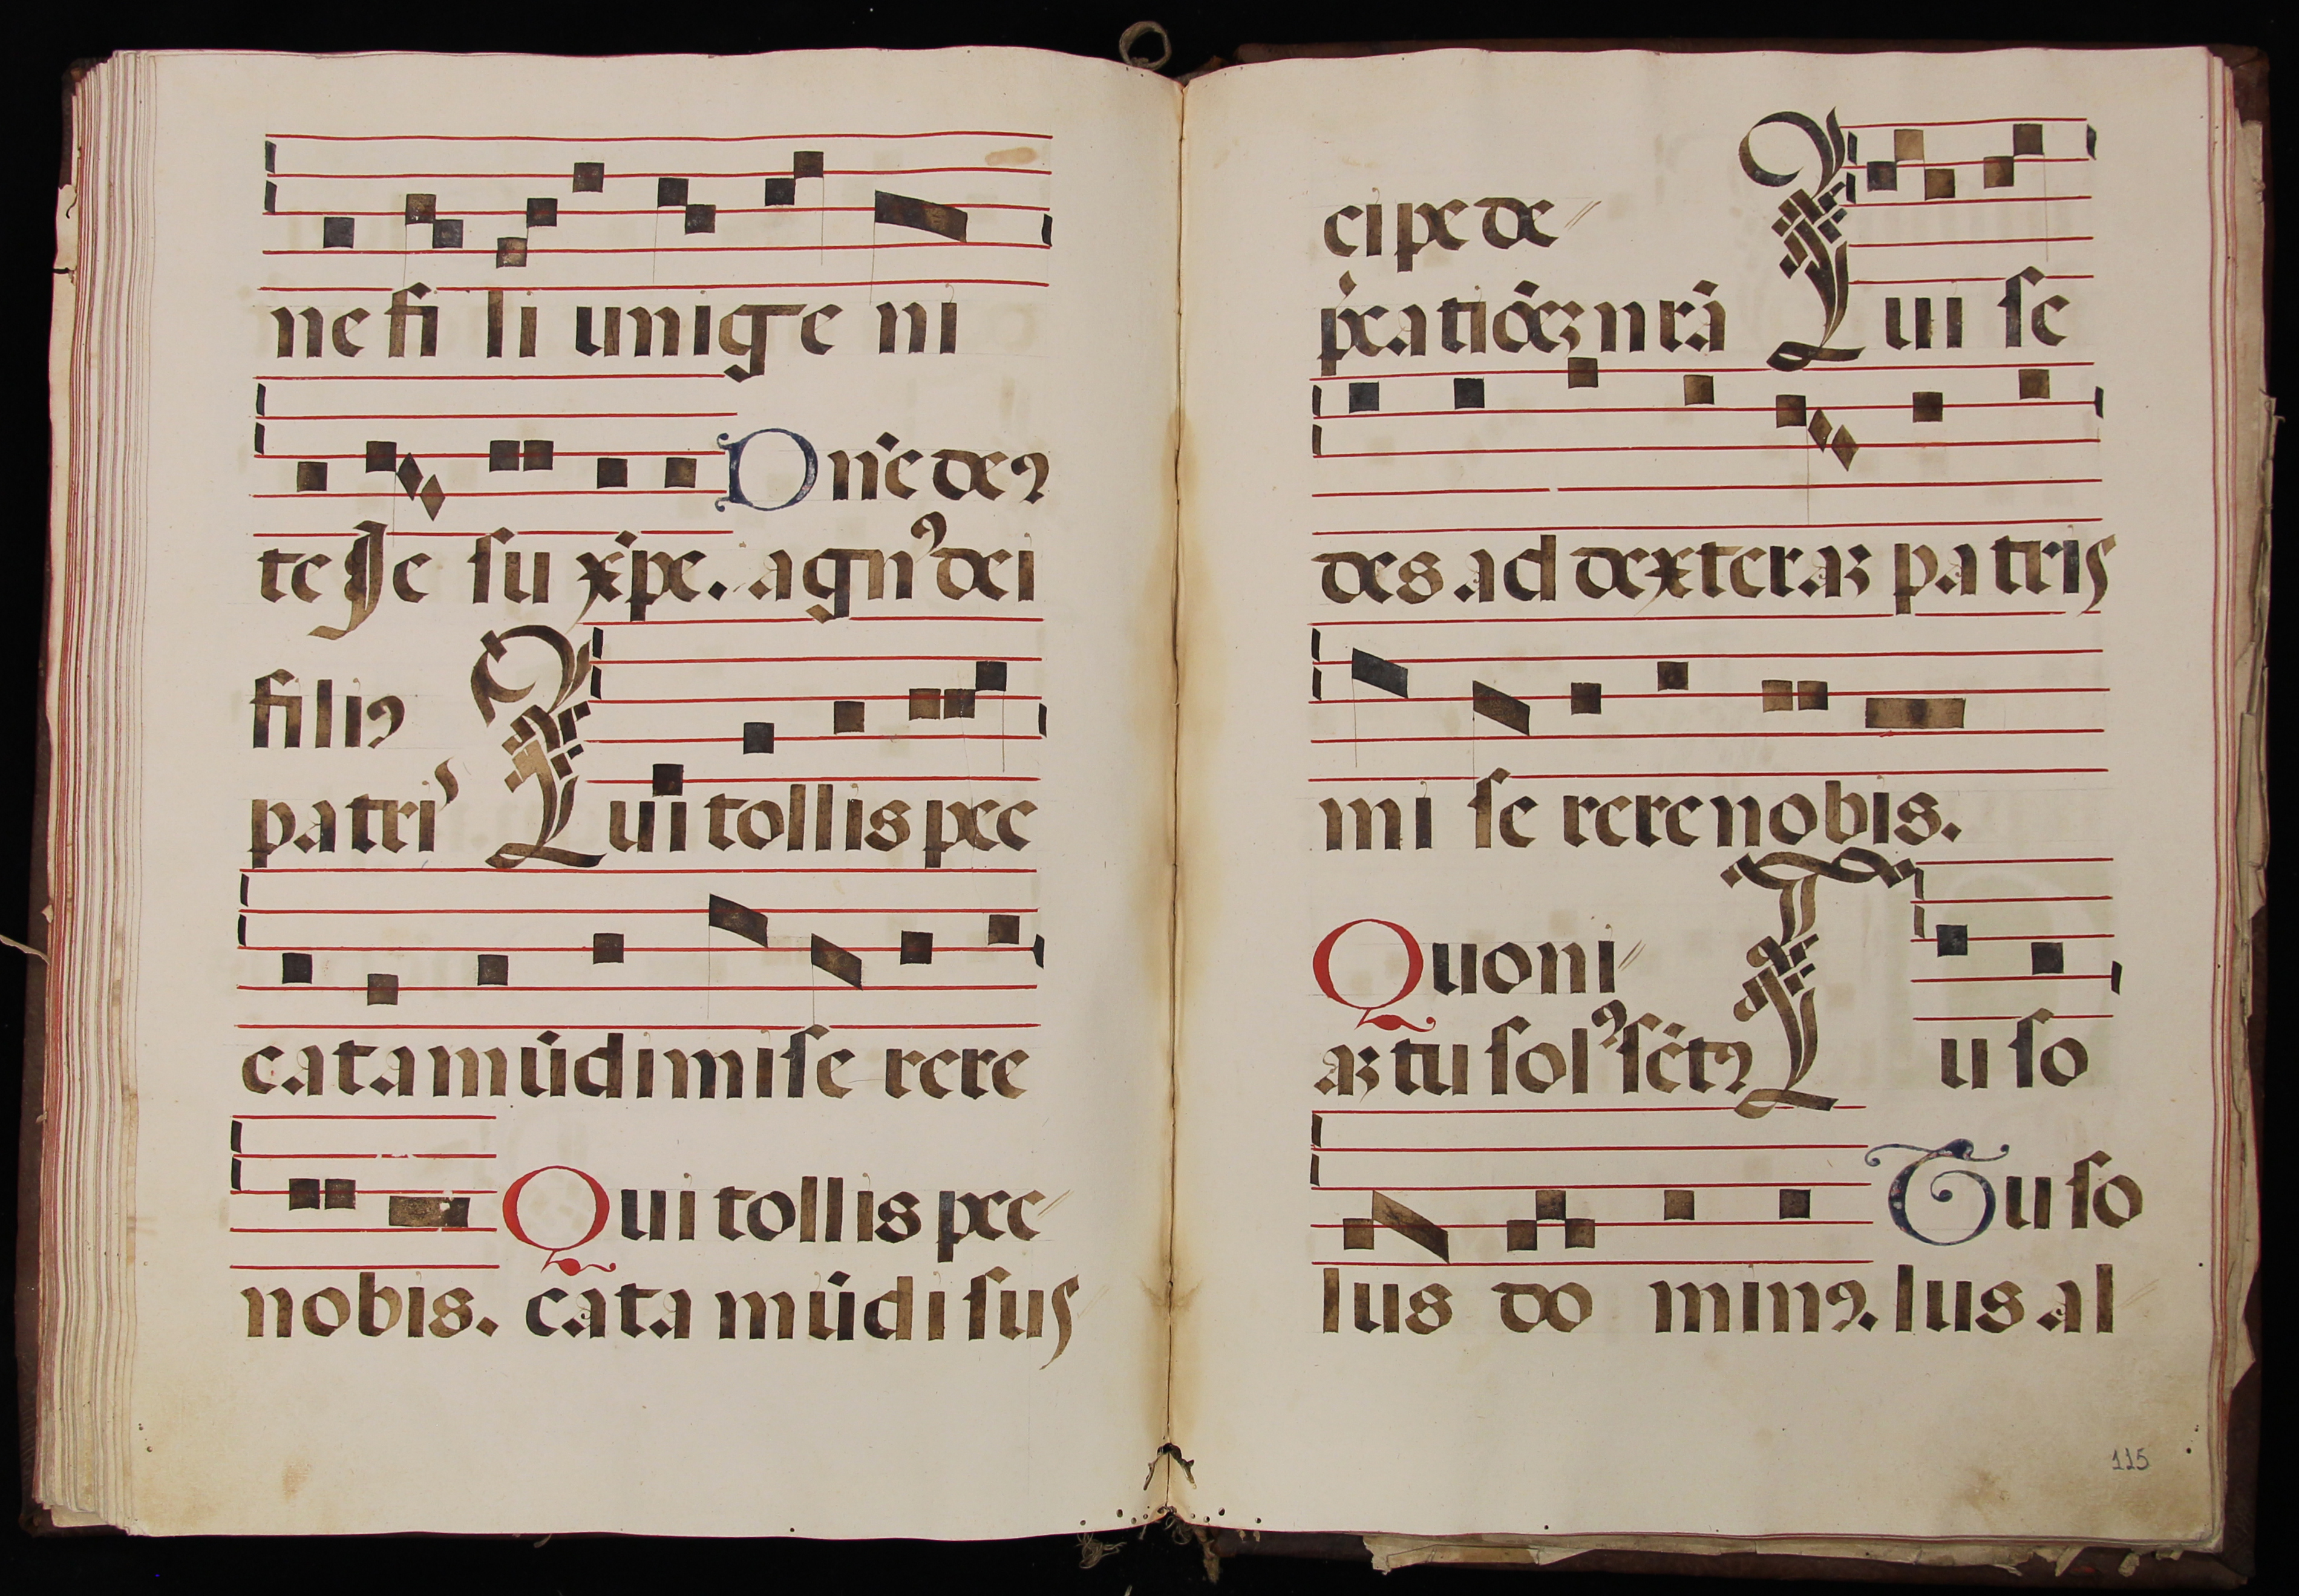 ne fi li unige ni
Dn̄e deꝰ
te Je su xp̄e. agnꝰ dei
filiꝰ
patris Qui tollis pec
cata mūdi mise rere
Qui tollis pec
nobis. cata mūdi sus
cipe de
Qui se
p̄catiōeꝫ nrā
des ad dexteraꝫ patris
mi se rere nobis.
Quoni
aꝫ tu solꝰ sētꝰ Tu so
Tu so
lus do minꝰ. lus al
115